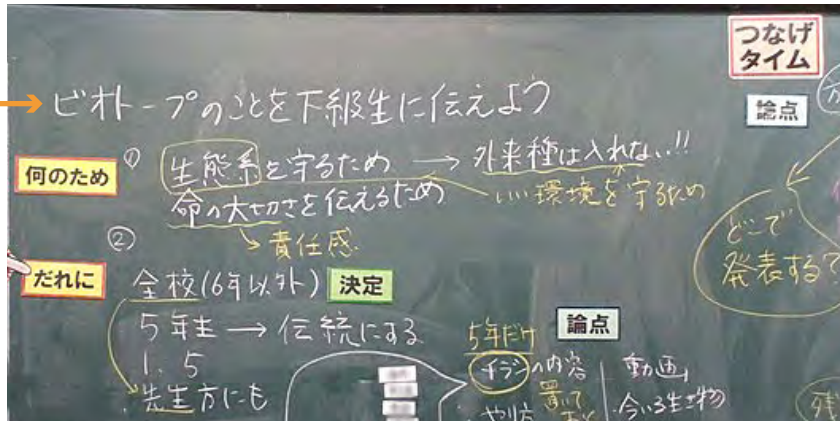 つなげ
タイム
ビオトープのことを下級生に伝えよう
論点
何のため
① 生態系を守るため → 外来種は入れない!!
命の大切さを伝えるため
いい環境を守るため
責任感
どこで
発表する
だれに
② 全校(6年以外) 決定
5年生 → 伝統にする
1.5
先生方にも
論点
5年だけ
チラシの内容
やり方
置いて
動画
・今いる生き物